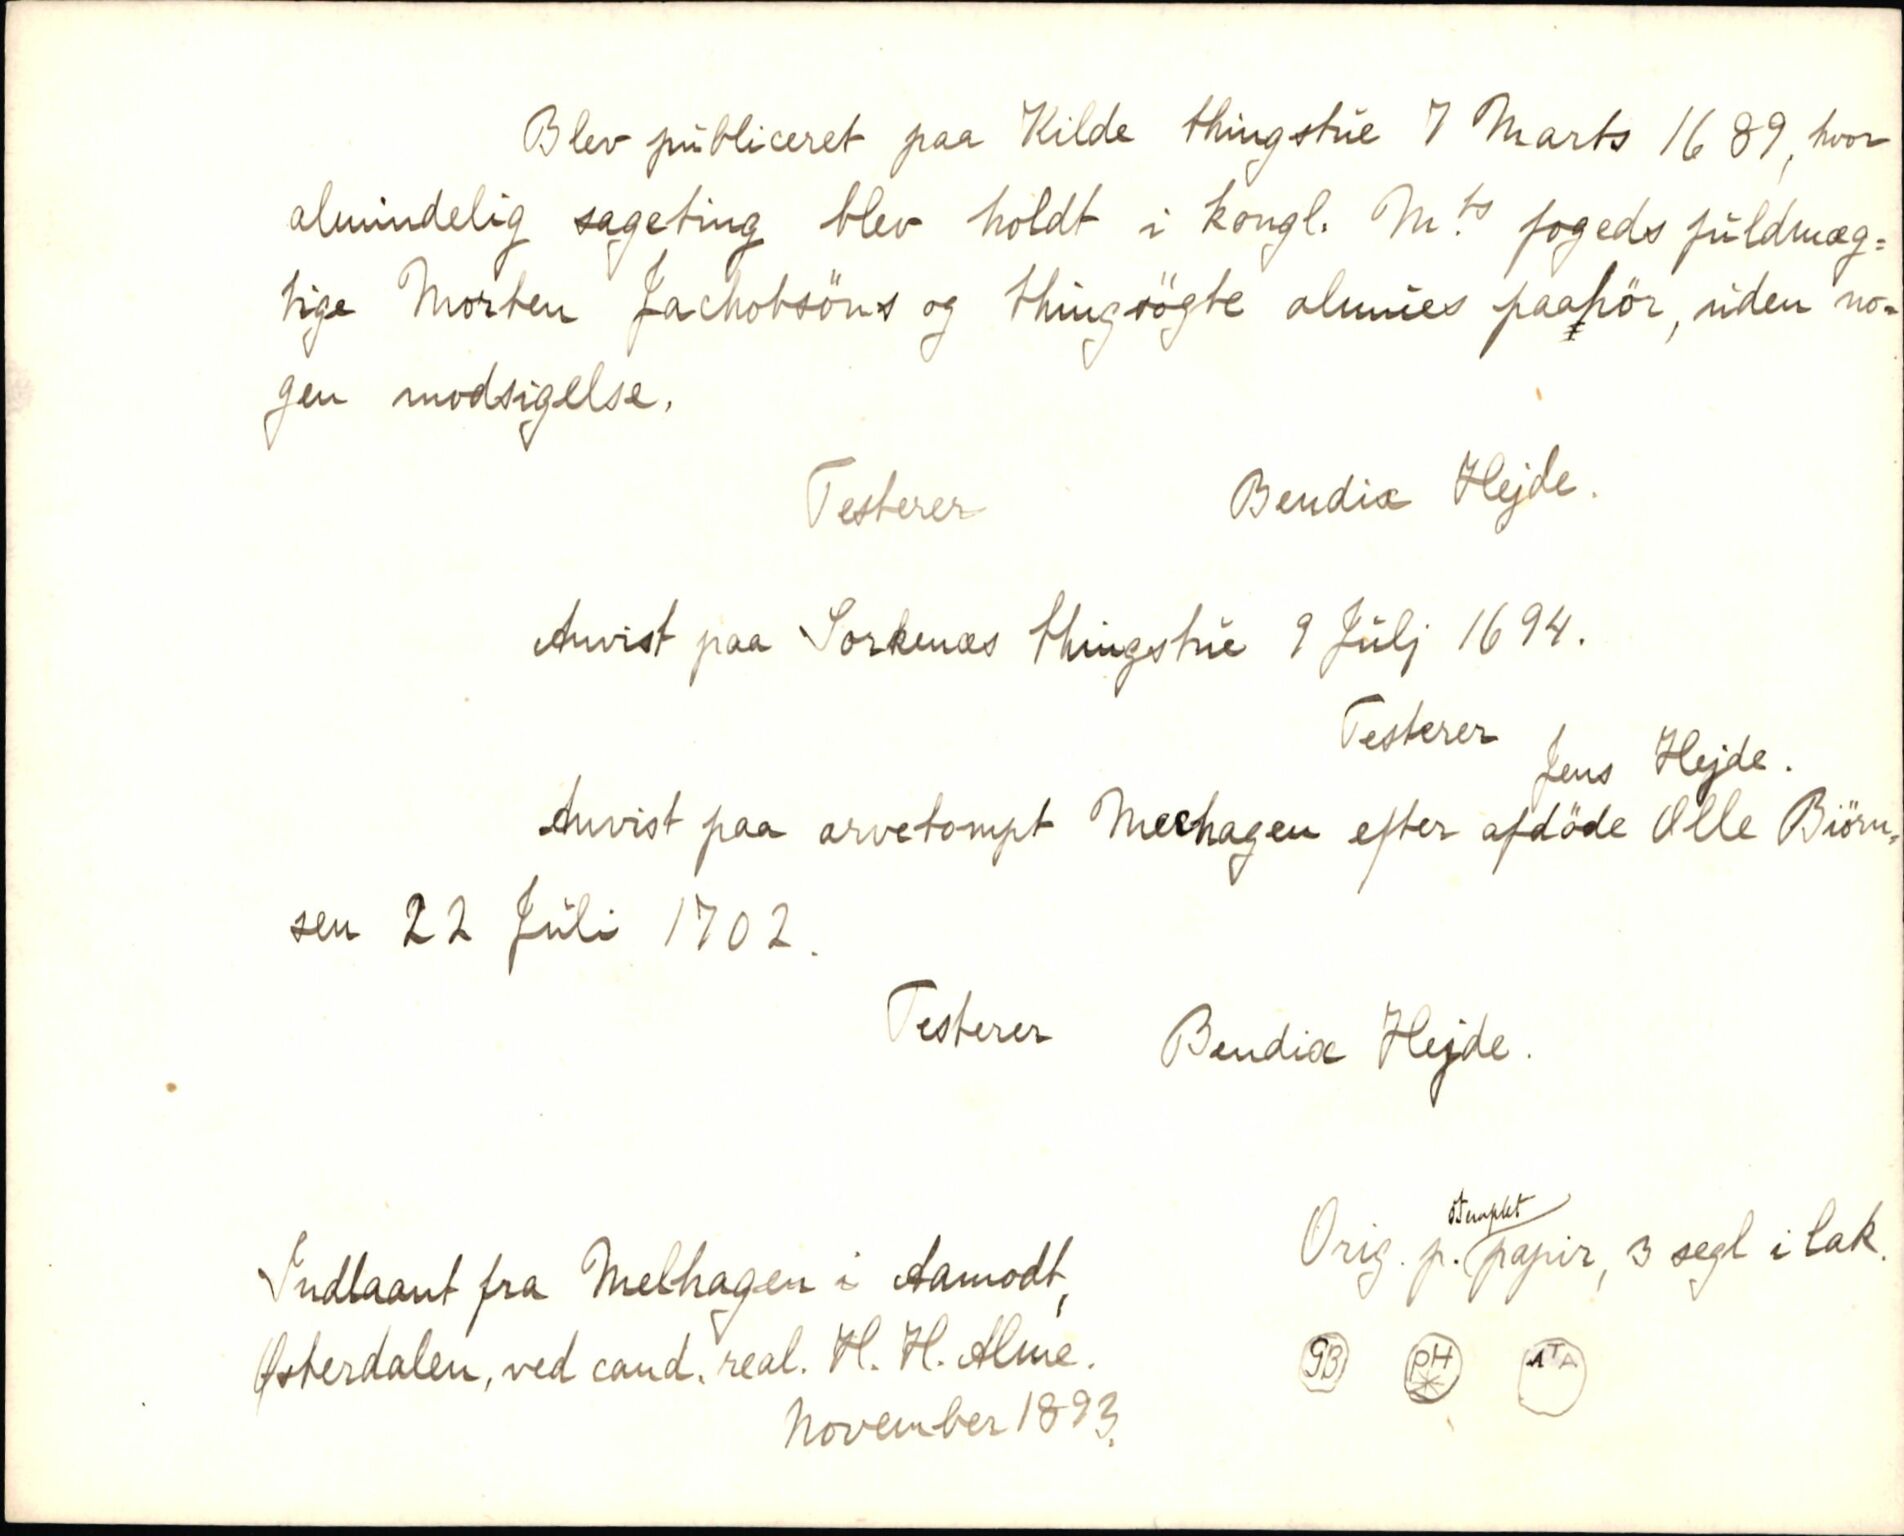 Blev publiceret paa Kilde thingstue 7 Marts 1689, hvor
almindelig sageting blev holdt i kongl. M.ts fogeds fuldmæg=
tige Morten Jachobsöns og thingsögte almues paahör, uden no=
gen modsigelse.
Testerer Bendix Hejde.
Anvist paa Sorkenæs thingstue 9 Julj 1694.
Testerer Jens Hejde.
Anvist paa arvetompt Meehagen efter afdöde Olle Biörn=
sen 22 Juli 1702.
Testerer Bendix Hejde.
Orig. p. stemplet papir, 3 segl i lak.
GB PH
Indlaant fra Melhagen i Aamodt,
Østerdalen, ved cand. real. H. H. Alme.
November 1893.